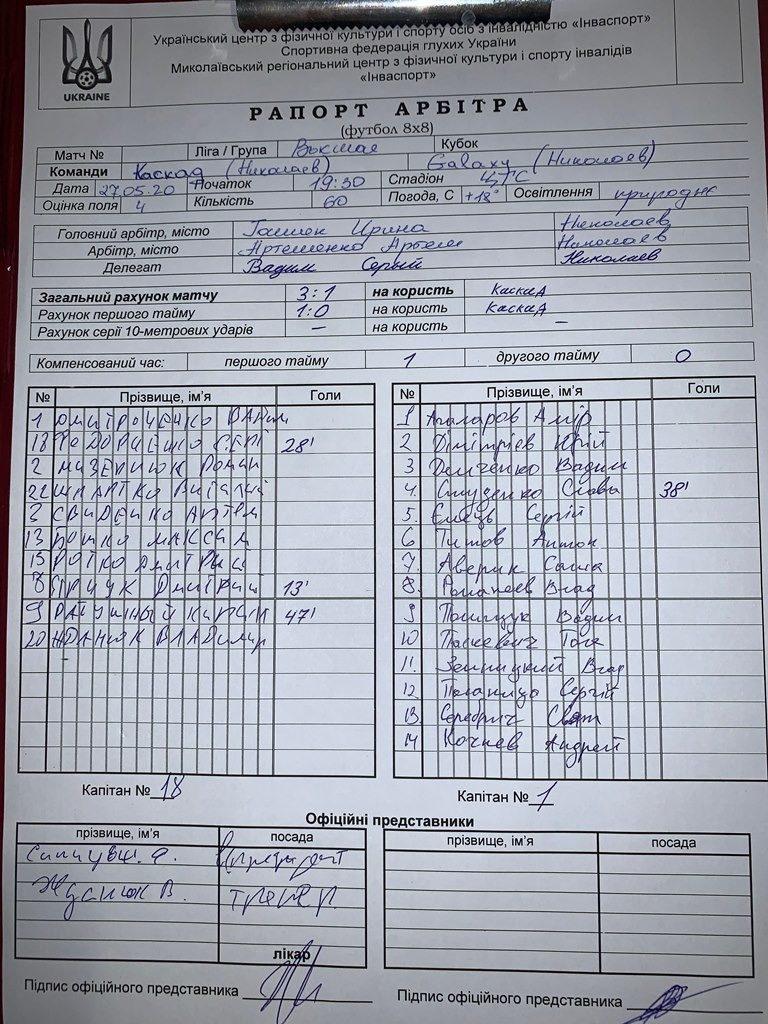 Український центр з фізичної культури і спорту осіб з інвалідністю «Інваспорт»
Спортивна федерація глухих України
Миколаївський регіональний центр з фізичної культури і спорту інвалідів
«Інваспорт»
UKRAINE
РАПОРТ АРБІТРА
(футбол 8х8)
Матч № Ліга / Група Высшая Кубок
Команди Каскад (Николаев) Galaxy (Николаев)
Дата 27.05.20 Початок 19:30 Стадіон ЦТС
Оцінка поля 4 Кількість 60 Погода, С +18° Освітлення природнє
Головний арбітр, місто Ирина Николаев
Арбітр, місто Артеменко Артем Николаев
Делегат Вадим Серый Николаев
Загальний рахунок матчу 3:1 на користь Каскад
Рахунок першого тайму 1:0 на користь Каскад
Рахунок серії 10-метрових ударів – на користь –
Компенсований час: першого тайму 1 другого тайму 0
№ Прізвище, ім'я Голи
1 Дмитроченко Вадим
18 28'
2 Мазенюк Роман
22 Виталий
3 Свиденко Артем
13 Бошко Максим
15 Ротко Дмитрий
8 Дмитрий 13'
9 Ратушный Кирилл 47'
20 Жданюк Владимир
Капітан № 18
№ Прізвище, ім'я Голи
1 Агаларов Амір
2 Дімітріев Юрій
3 Демченко Вадим
4. Студенко Слава 38'
5. Ємець Сергій
6 Титов Антон
7. Аверин Саша
8. Романаев Влад
9 Полищук Вадим
10 Паскевич
11. Зелницкий Влад
12 Сергій
13 Серебрич Свят
14 Кочнев Андрей
Капітан № 1
Офіційні представники
прізвище, ім'я посада
Жданюк В. тренер
лікар
Підпис офіційного представника
прізвище, ім'я посада
Підпис офіційного представника